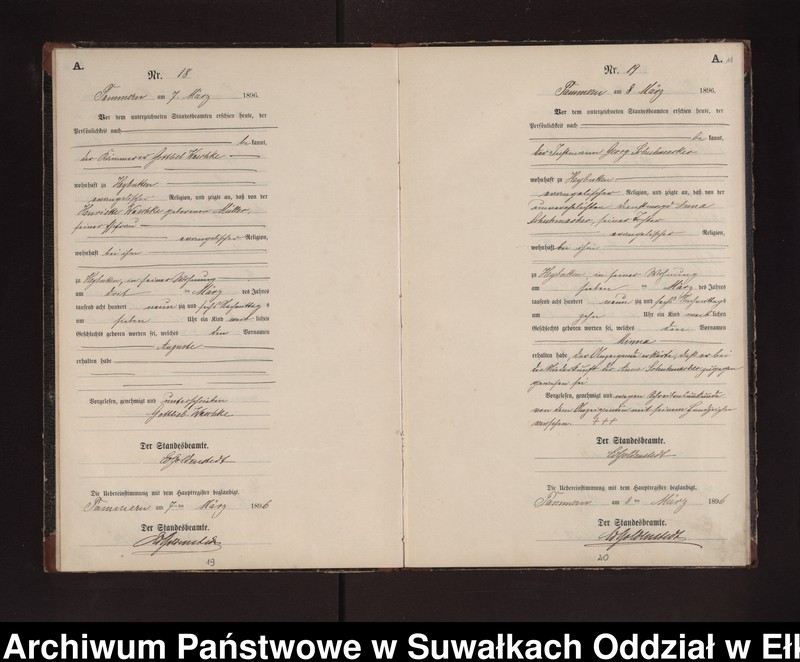 A.
Nr. 18
Tammern am 7. März 1896.
Vor dem unterzeichneten Standesbeamten erschien heute, der
Persönlichkeit nach
be kannt,
der Kämmerer Gottlieb
wohnhaft zu Heybutten
evangelischer Religion, und zeigte an, daß von der
Henriette geborenen Müller,
seiner Ehefrau
evangelischer Religion,
wohnhaft bei ihm
zu Heybutten, in seiner Wohnung
am März des Jahres
tausend acht hundert neun zig und sechs Nachmittags
um sieben Uhr ein Kind weib lichen
Geschlechts geboren worden sei, welches den Vornamen
Auguste
erhalten habe
Vorgelesen, genehmigt und unterschrieben
Gottlieb
Der Standesbeamte.
Die Uebereinstimmung mit dem Hauptregister beglaubigt.
Tammern am 7ten März 1896
Der Standesbeamte.
19
A.
Nr. 19
Tammern am 8 März 1896.
Vor dem unterzeichneten Standesbeamten erschien heute, der
Persönlichkeit nach
be kannt,
der Georg Schuhmacher
wohnhaft zu Heybutten
evangelischer Religion, und zeigte an, daß von der
unverehelichten Dienstmagd Anna
Schuhmacher, seiner Tochter
evangelischer Religion,
wohnhaft bei ihm
zu Heybutten, in seiner Wohnung
am sieben März des Jahres
tausend acht hundert neun zig und sechs Nachmittags
um zehn Uhr ein Kind weib lichen
Geschlechts geboren worden sei, welches den Vornamen
Minna
erhalten habe, der Anzeigende erklärte, daß er bei
der Niederkunft der Anna Schuhmacher zugegen
gewesen sei
Vorgelesen, genehmigt und wegen Schreibensunkunde
von dem Anzeigenden mit seinem Handzeichen
versehen +++
Der Standesbeamte.
Die Uebereinstimmung mit dem Hauptregister beglaubigt.
Tammern am 8ten März 1896
Der Standesbeamte.
20
Archiwum Państwowe w Suwałkach Oddział w Ełk